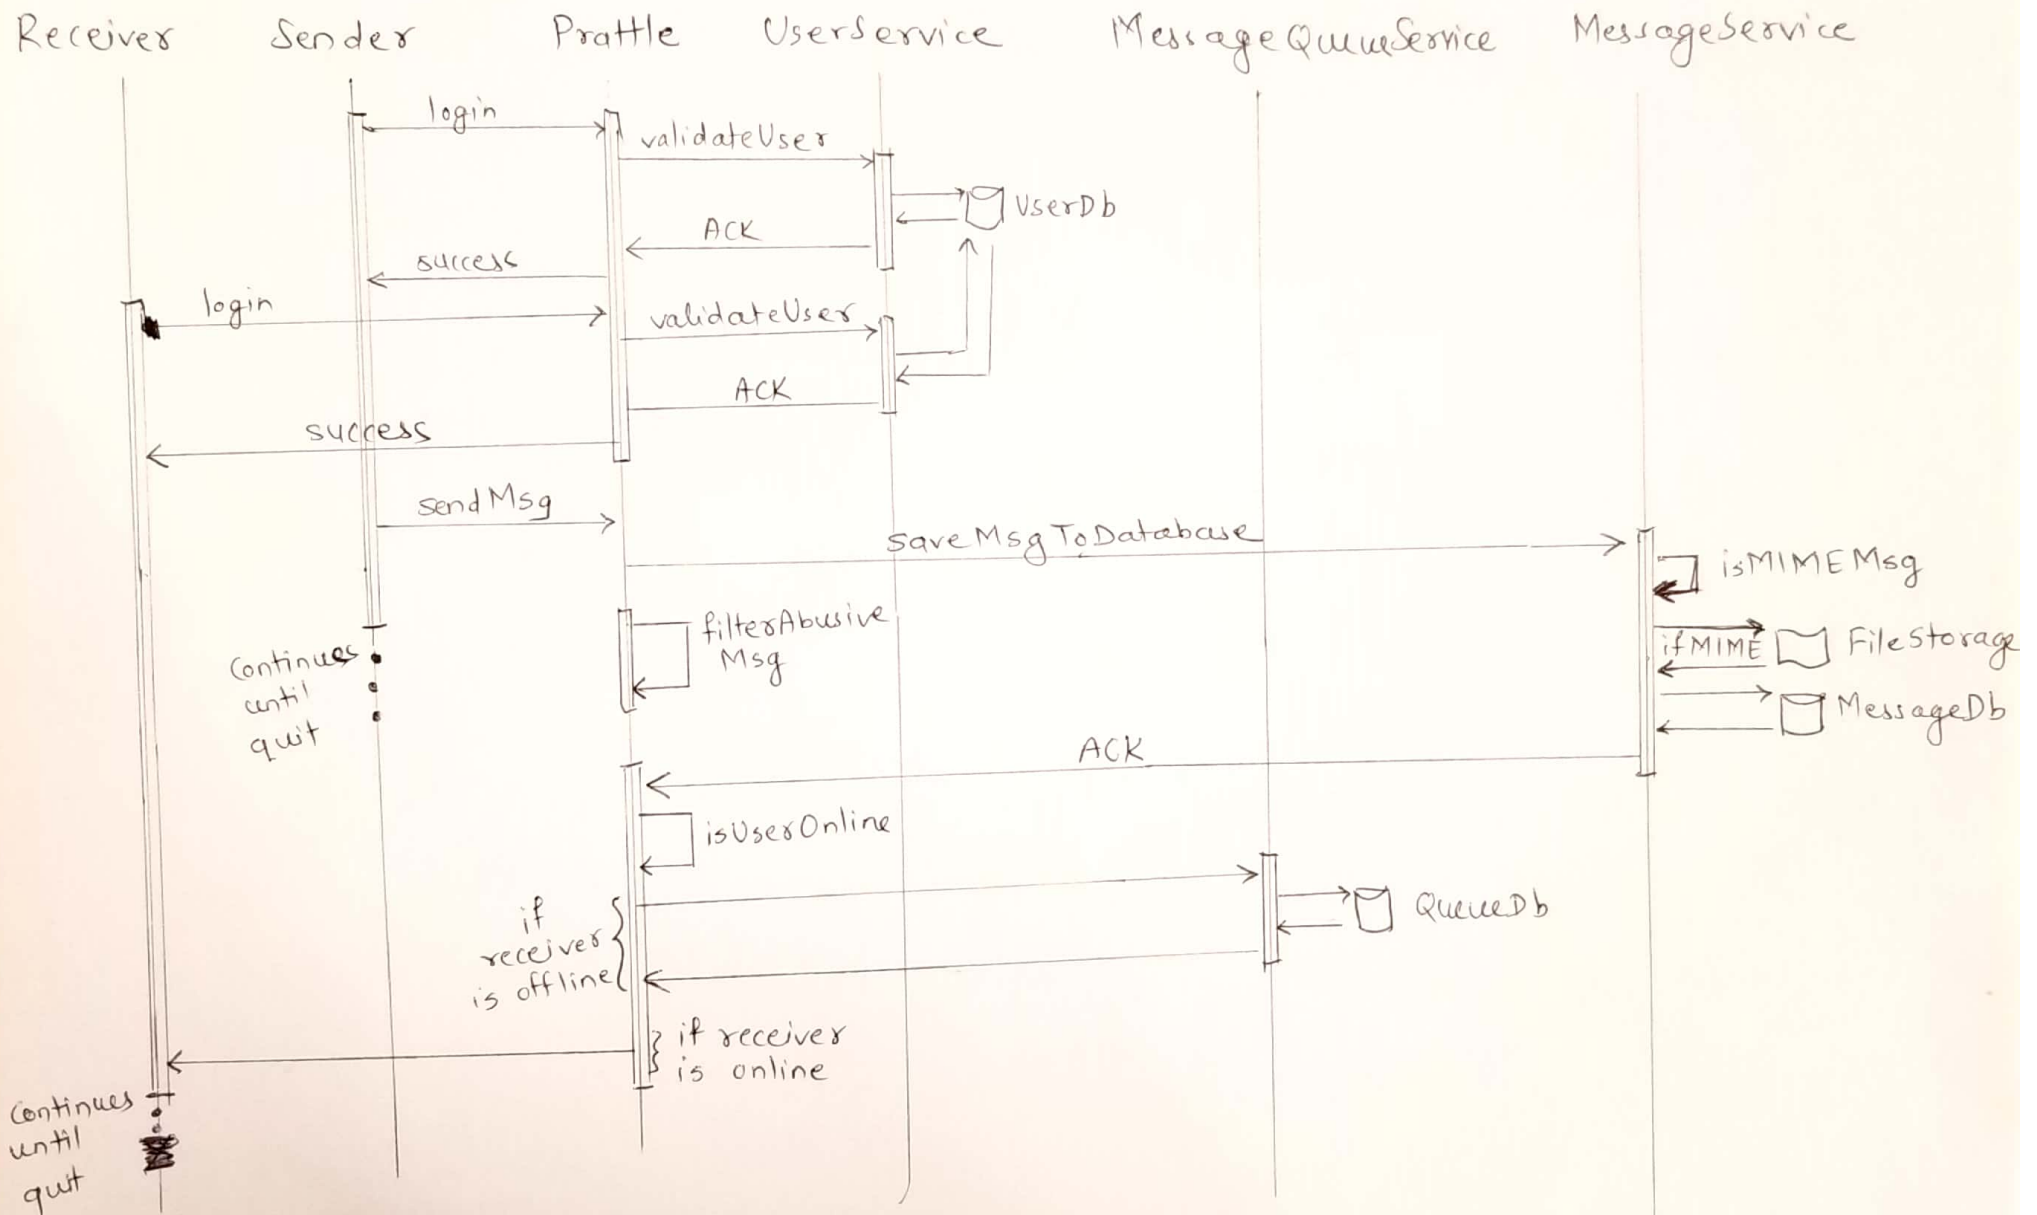 Receiver Sender Prattle UserService MessageQueueService MessageService
login
validateUser
UserDb
ACK
success
login
validateUser
ACK
success
sendMsg
saveMsgToDatabase
isMIMEMsg
filterAbusive
Msg
ifMIME
FileStorage
Continues
until
quit
MessageDb
ACK
isUserOnline
if
receiver
is offline
QueueDb
if receiver
is online
Continues
until
quit